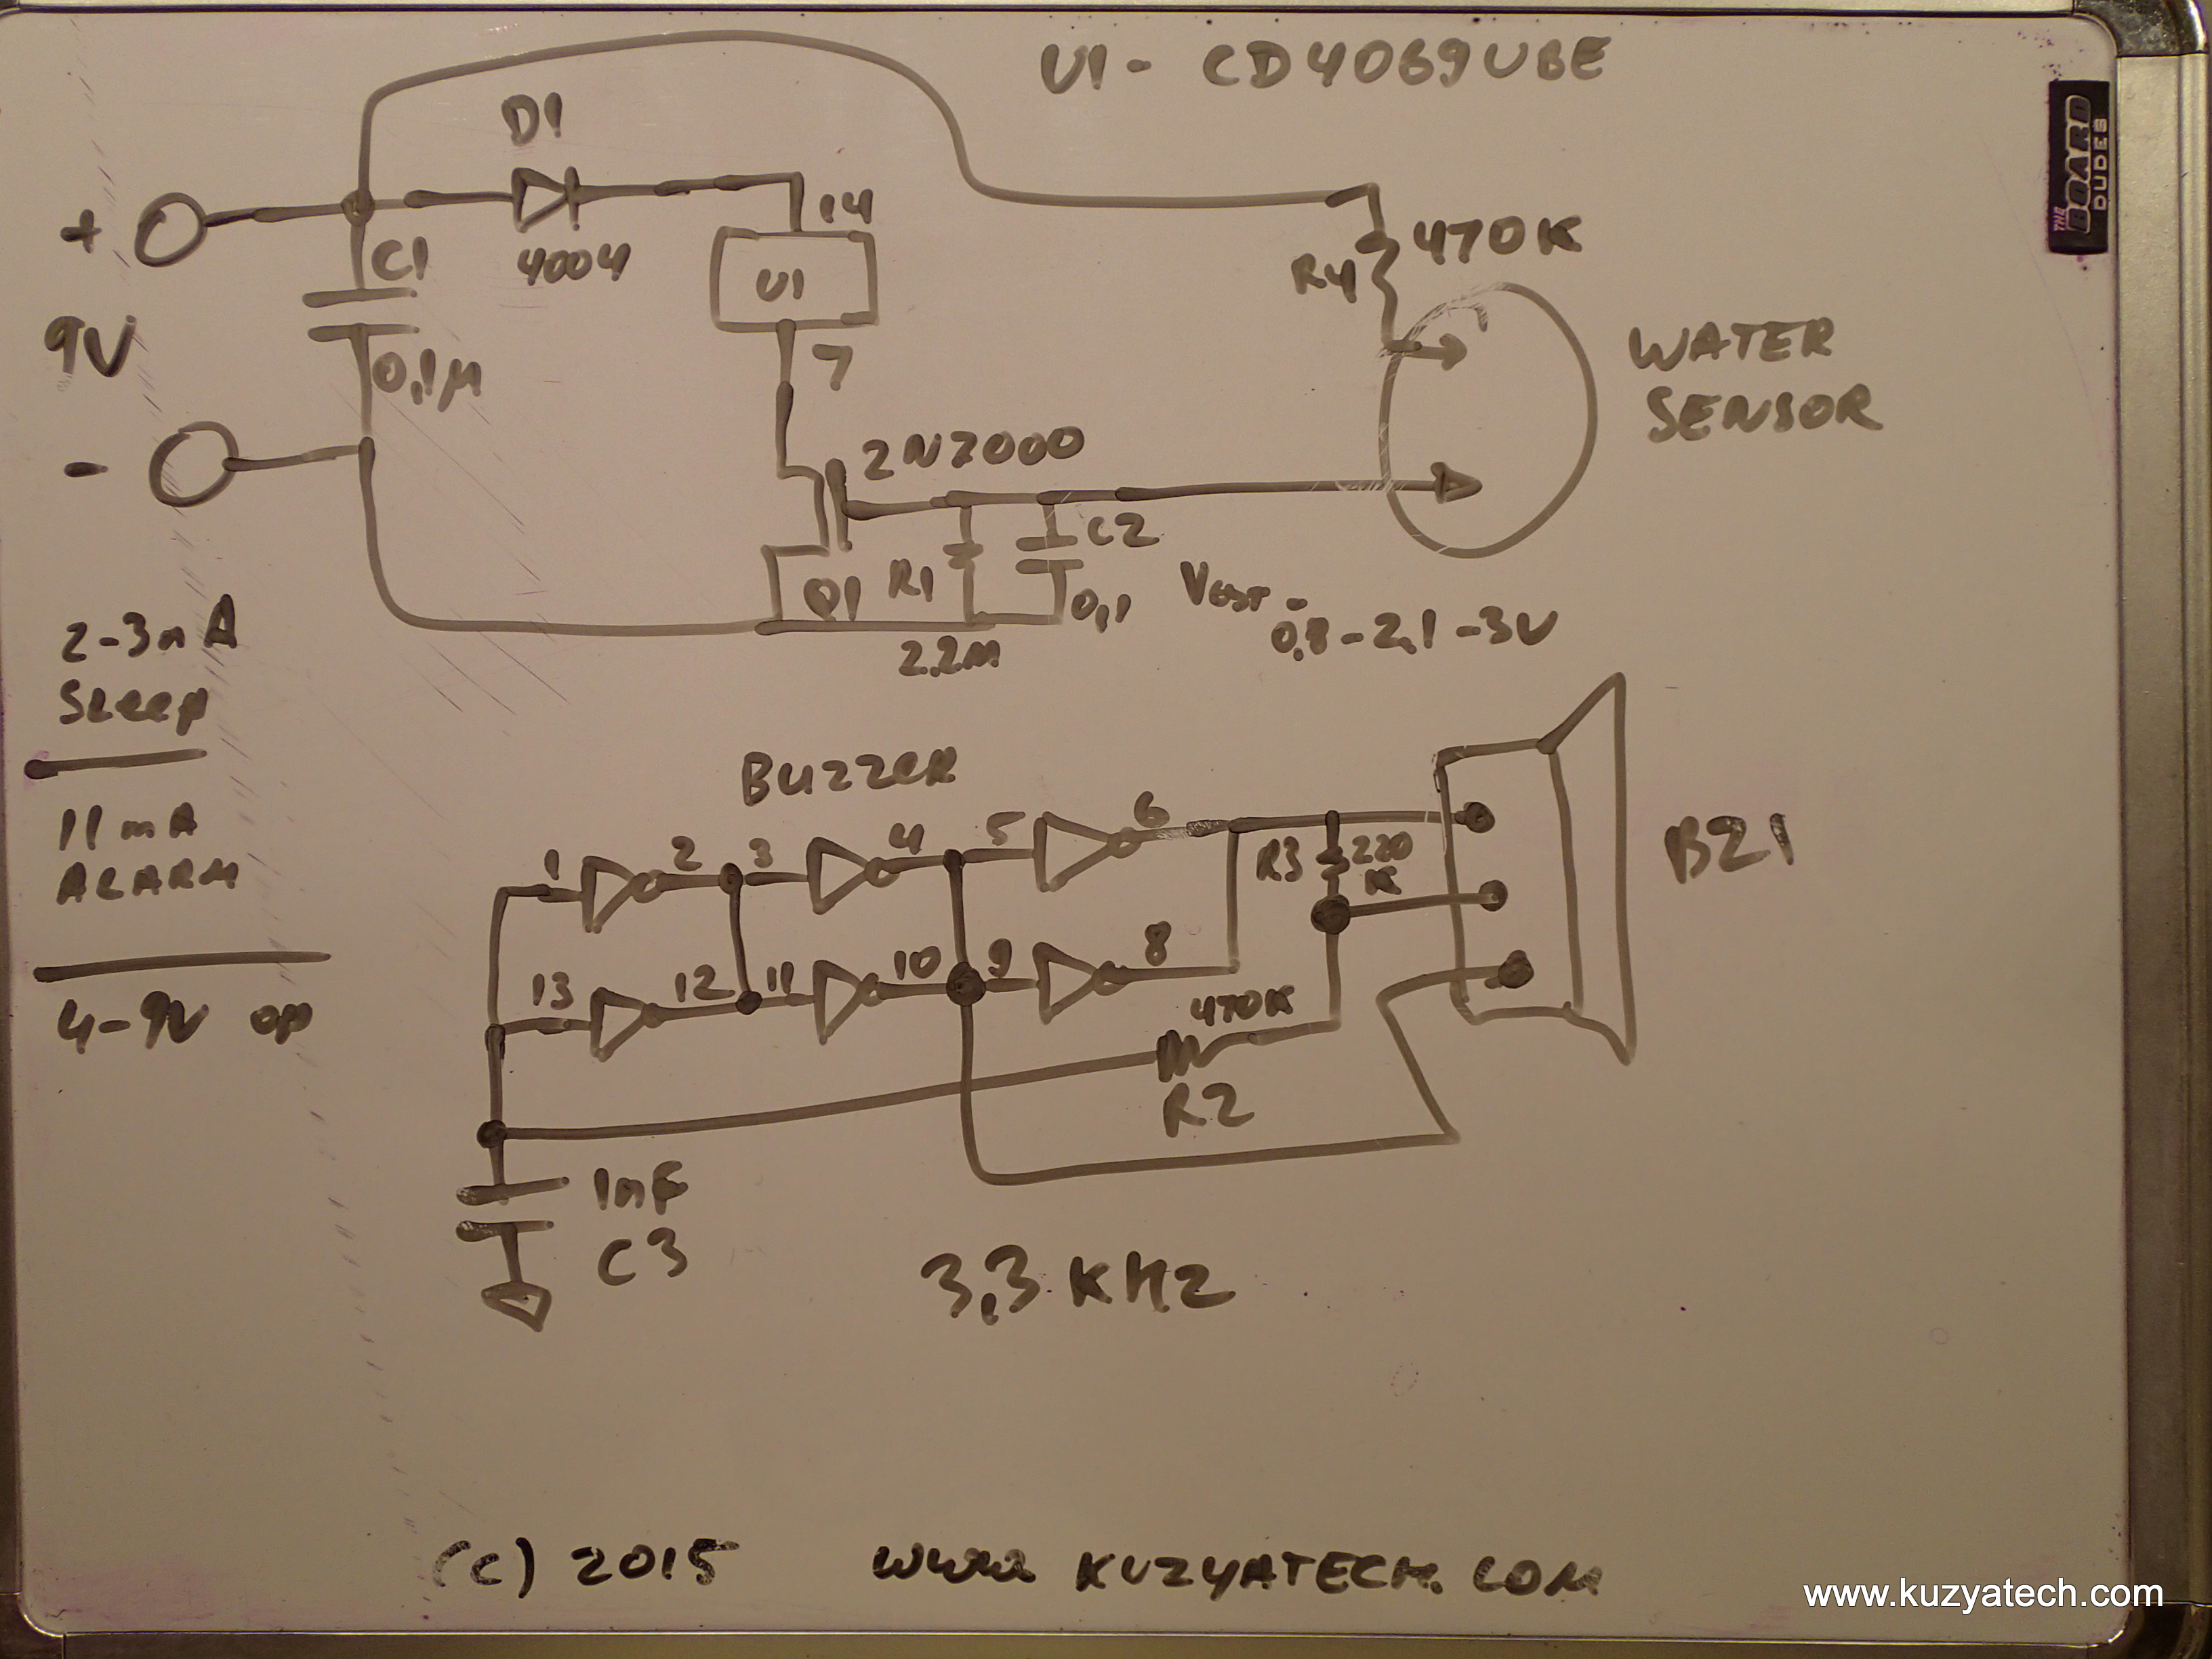 U1 - CD4069UBE
THE BOARD DUDES
D1
+
14
C1
4004
470K
R4
U1
9V
0,1µ
7
WATER
SENSOR
2N7000
-
C2
Q1
R1
0,1
VGST = 0.8-2.1-3V
2.2M
2-3nA
Sleep
11mA
ALARM
4-9V op
BUZZER
1
2
3
4
5
6
R3
220
K
BZ1
13
12
11
10
9
8
470K
R2
1nF
C3
3,3 KHz
(C) 2015 www KUZYATECH.COM
www.kuzyatech.com